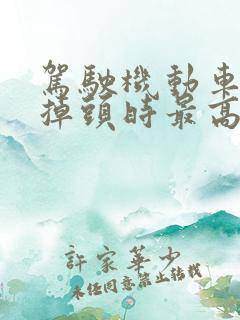 駕駛機動車
掉頭時最高
許家華少
未任同意禁止轉載